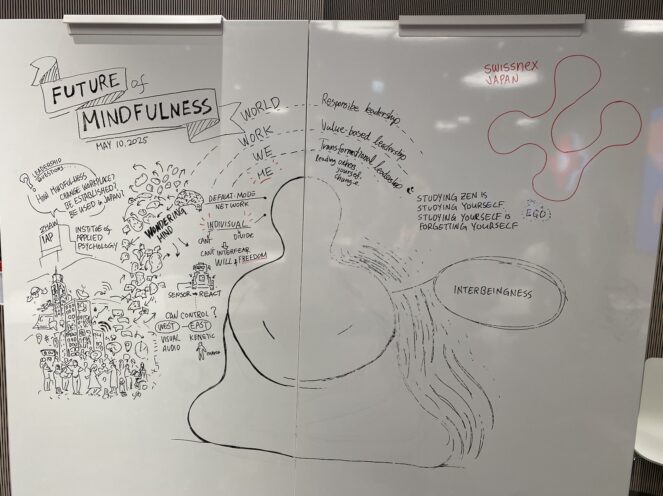 FUTURE of
MINDFULNESS
MAY 10, 2025
WORLD
WORK
WE
ME
Responsible leadership
Value-based leadership
Transformational leadership
Leading others
yourself
change
swissnex
JAPAN
LEADERSHIP
HOW MINDFULNESS
CHANGE WORKPLACE?
BE ESTABLISHED?
BE USED in JAPAN?
ZHAW
IAP
INSTITUE of
APPLIED
PSYCHOLOGY
WANDERING
MIND
DEFAULT-MODE
NETWORK
INDIVISUAL
CAN'T DIVIDE
CAN'T INTERFEAR
WILL & FREEDOM
SENSOR → REACT
CAN CONTROL?
WEST EAST
VISUAL KENETIC
AUDIO
STUDYING ZEN IS
STUDYING YOURSELF.
STUDYING YOURSELF is
FORGETTING YOURSELF
EGO
INTERBEINGNESS